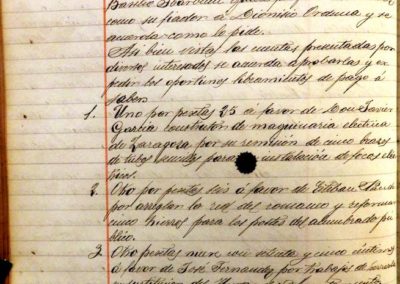 como su fiador á Dionisio Orduna y se
acuerda como lo pide.
Asi bien vistas las cuentas presentadas por
diversos interesados se acuerda aprobarlas y ex
pedir los oportunos libramientos de pago á
saber:
1. Uno por pesetas 25 á favor de Don Javier
García constructor de maquinaria electrica
de Zaragoza por su remisión de cinco brazos
de tubos para instalación de focos elec
tricos.
2. Otro por pesetas seis á favor de Esteban
por arreglar la red del romano y reformar
cinco hierros para los postes del alumbrado pu
blico.
3. Otro pesetas nueve con setenta y cinco centimos
á favor de José Fernandez por trabajos de